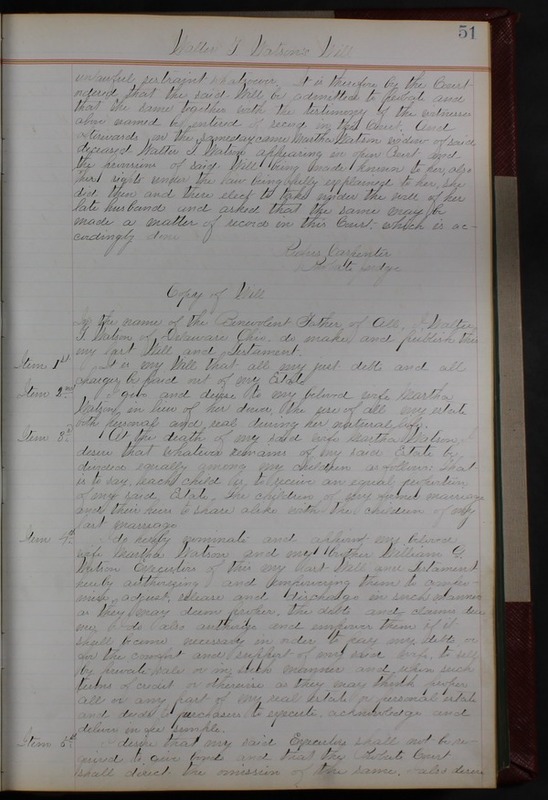 51
Walter T Watson's Will
unlawful restraint whatever. It is therefore by the Court
ordered that the said Will be admitted to probate and
that the same together with the testimony of the witnesses
above named be entered of record in this Court. And
afterwards on the same day came Martha Watson widow of said
deceased Walter T Watson appearing in open Court and
the provisions of said Will being made known to her, also
her rights under the law being fully explained to her, she
did then and there elect to take under the will of her
late husband and asked that the same may be
made a matter of record in this Court. which is ac-
cordingly done
Carpenter
Probate Judge
Copy of Will
In the name of the Benevolent Father of All, I Walter
T Watson of Delaware Ohio, do make and publish this
my last Will and Testament.
Item 1st It is my Will that all my just debts and all
charges be paid out of my Estate
Item 2nd I give and devise to my beloved wife Martha
Watson, in lieu of her dower, the use of all my estate
both personal and real during her natural life.
Item 3d At the death of my said wife Martha Watson, I
desire that whatever remains of my said Estate be
divided equally among my children as follows: That
is to say, each child to receive an equal proportion
of my said Estate, the children of my former marriage
and their heirs to share alike with the children of my
last marriage
Item 4th I do hereby nominate and appoint my beloved
wife Martha Watson and my brother William G.
Watson Executors of this my last Will and Testament
hereby authorizing and empowering them to compro-
mise, adjust, release and discharge in such manner
as they may deem proper, the debts and claims due
me, I do also authorize and empower them if it
shall become necessary in order to pay my debts or
for the comfort and support of my said wife, to sell
by private sale or in such manner and upon such
terms of credit or otherwise as they may think proper
all or any part of my real estate or personal estate
and deeds to purchasers to execute, acknowledge and
deliver in fee simple.
Item 5th I desire that my said Executors shall not be re-
quired to give bond and that the Probate Court
shall direct the omission of the same. I also desire